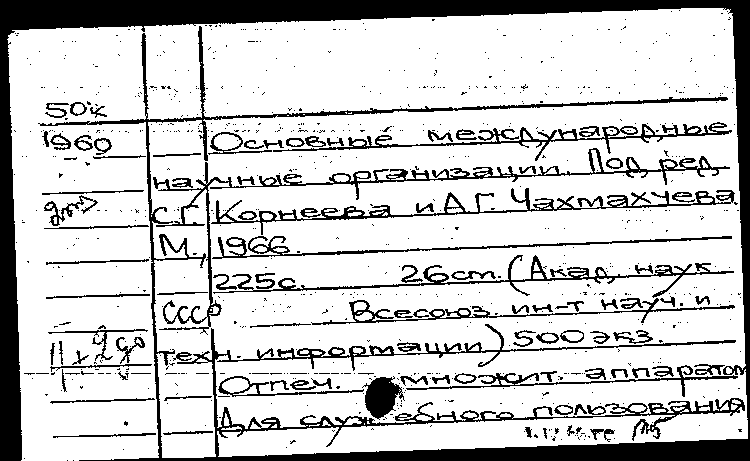 50к
1960 Основные международные
научные организации. Под ред.
С.Г. Корнеева и А.Г. Чахмахчева
М., 1966.
225с. 26cm. (Акад. наук
СССР Всесоюз. ин-т науч. и
техн. информации) 500 экз.
Отпеч. множит. аппаратом
Для служебного пользования